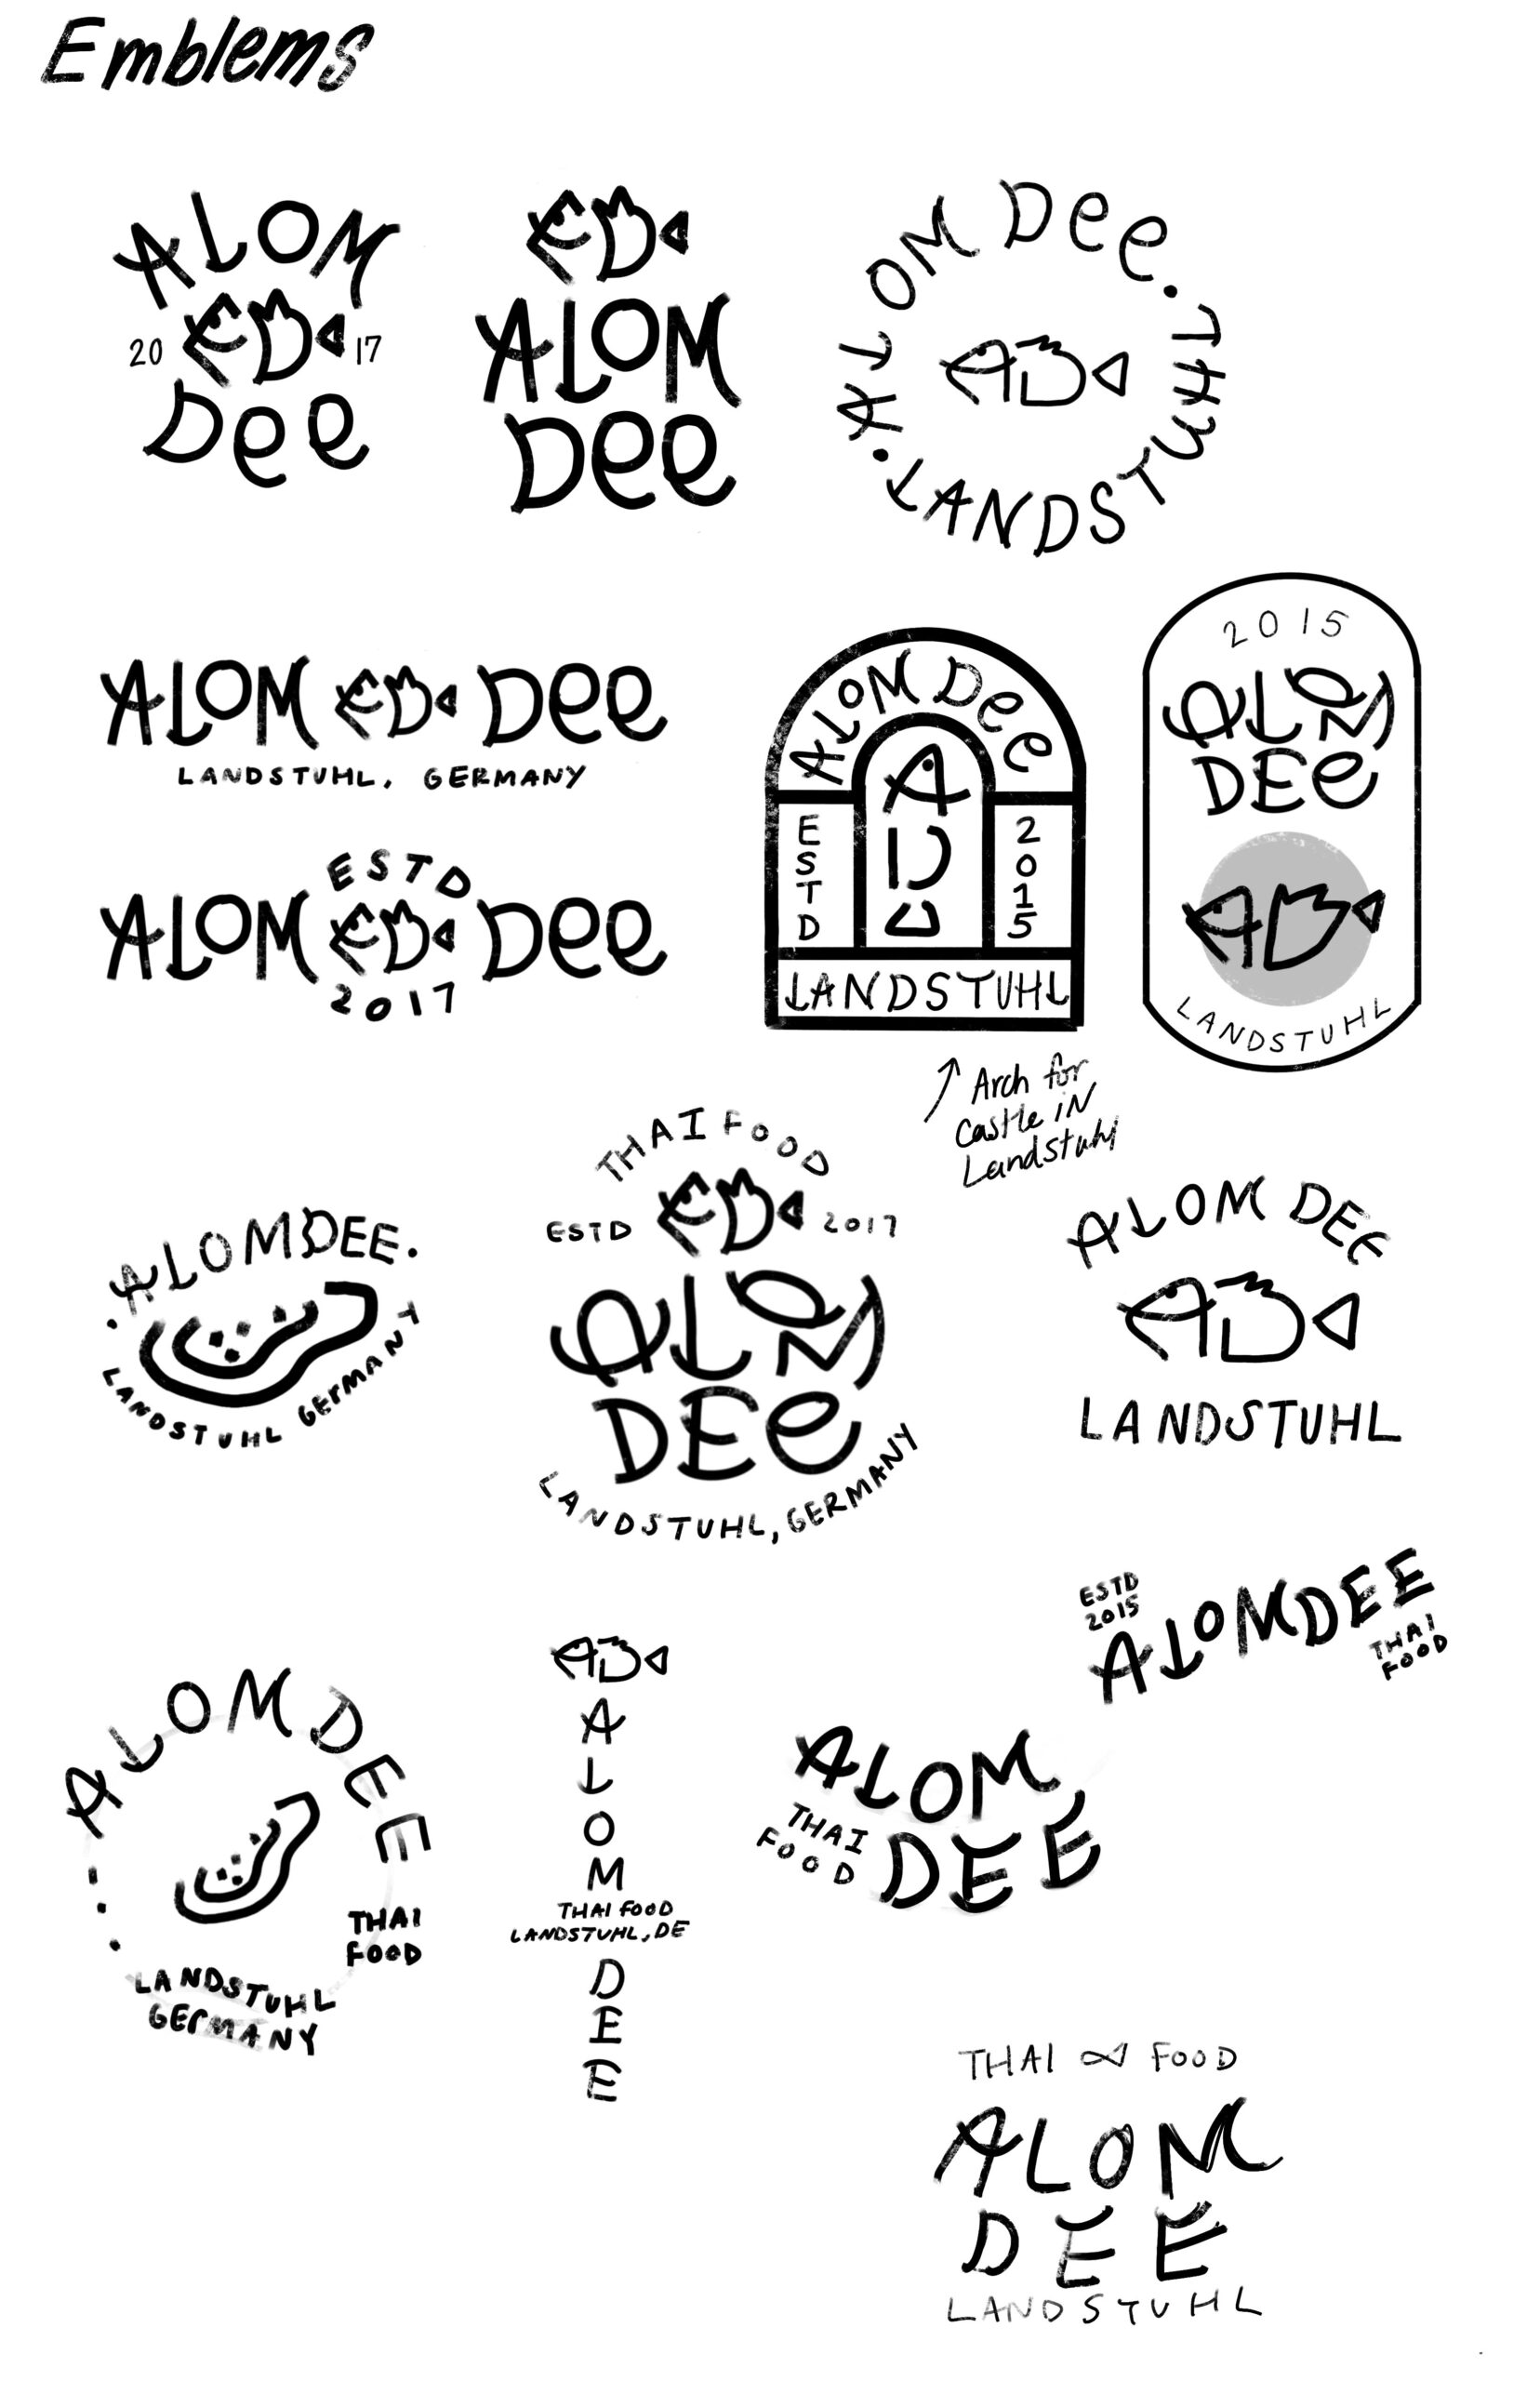 Emblems
ALOM
20 17
Dee
ALOM
Dee
ALOM Dee. LANDSTUHL.
AD
ALOM Dee
LANDSTUHL, GERMANY
ESTD
ALOM Dee
2017
ALOM Dee
ESTD
AD
2015
LANDSTUHL
Arch for
Castle in
Landstuhl
2015
ALOM
DEe
AD
LANDSTUHL
.ALOMDEE.
LANDSTUHL GERMANY
THAI FOOD
ESTD 2017
ALOM
DEe
LANDSTUHL, GERMANY
ALOM DEE
AD
LANDSTUHL
ESTD
2015
ALOMDEE
THAI
FOOD
ALOMDEE
THAI
FOOD
LANDSTUHL
GERMANY
AD
ALOM
THAI FOOD
LANDSTUHL, DE
DEE
ALOM
THAI
FOOD
DEE
THAI FOOD
ALOM
DEE
LANDSTUHL